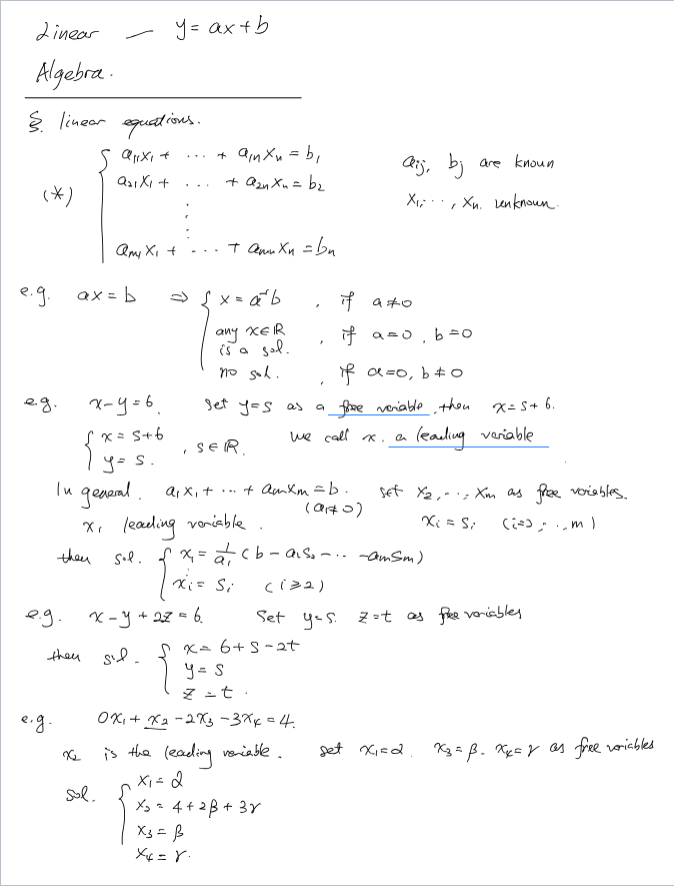 Linear — y = ax + b
Algebra.
§. linear equations.
(*) { a₁₁x₁ + ... + a₁ₙxₙ = b₁
a₂₁x₁ + ... + a₂ₙxₙ = b₂
⋮
aₘ₁x₁ + ... + aₘₙxₙ = bₙ
aᵢⱼ, bⱼ are known
x₁, ..., xₙ. unknown.
e.g. ax = b ⇒ { x = a⁻¹b , if a ≠ 0
any x∈ℝ is a sol. , if a = 0, b = 0
no sol. , if a = 0, b ≠ 0
e.g. x - y = 6. set y = s as a free variable, then x = s + 6.
{ x = s + 6
y = s. , s ∈ ℝ. We call x. a leading variable
In general. a₁x₁ + ... + aₘxₘ = b. set x₂, ..., xₘ as free variables.
(a₁ ≠ 0)
x₁ leading variable. xᵢ = sᵢ (i=2, ..., m)
then sol. { x₁ = 1/a₁ (b - a₂s₂ - ... - aₘsₘ)
xᵢ = sᵢ (i ≥ 2)
e.g. x - y + 2z = 6. Set y = s. z = t as free variables
then sol. { x = 6 + s - 2t
y = s
z = t.
e.g. 0x₁ + x₂ - 2x₃ - 3x₄ = 4.
x₂ is the leading variable. set x₁ = α. x₃ = β. x₄ = γ as free variables
sol. { x₁ = α
x₂ = 4 + 2β + 3γ
x₃ = β
x₄ = γ.